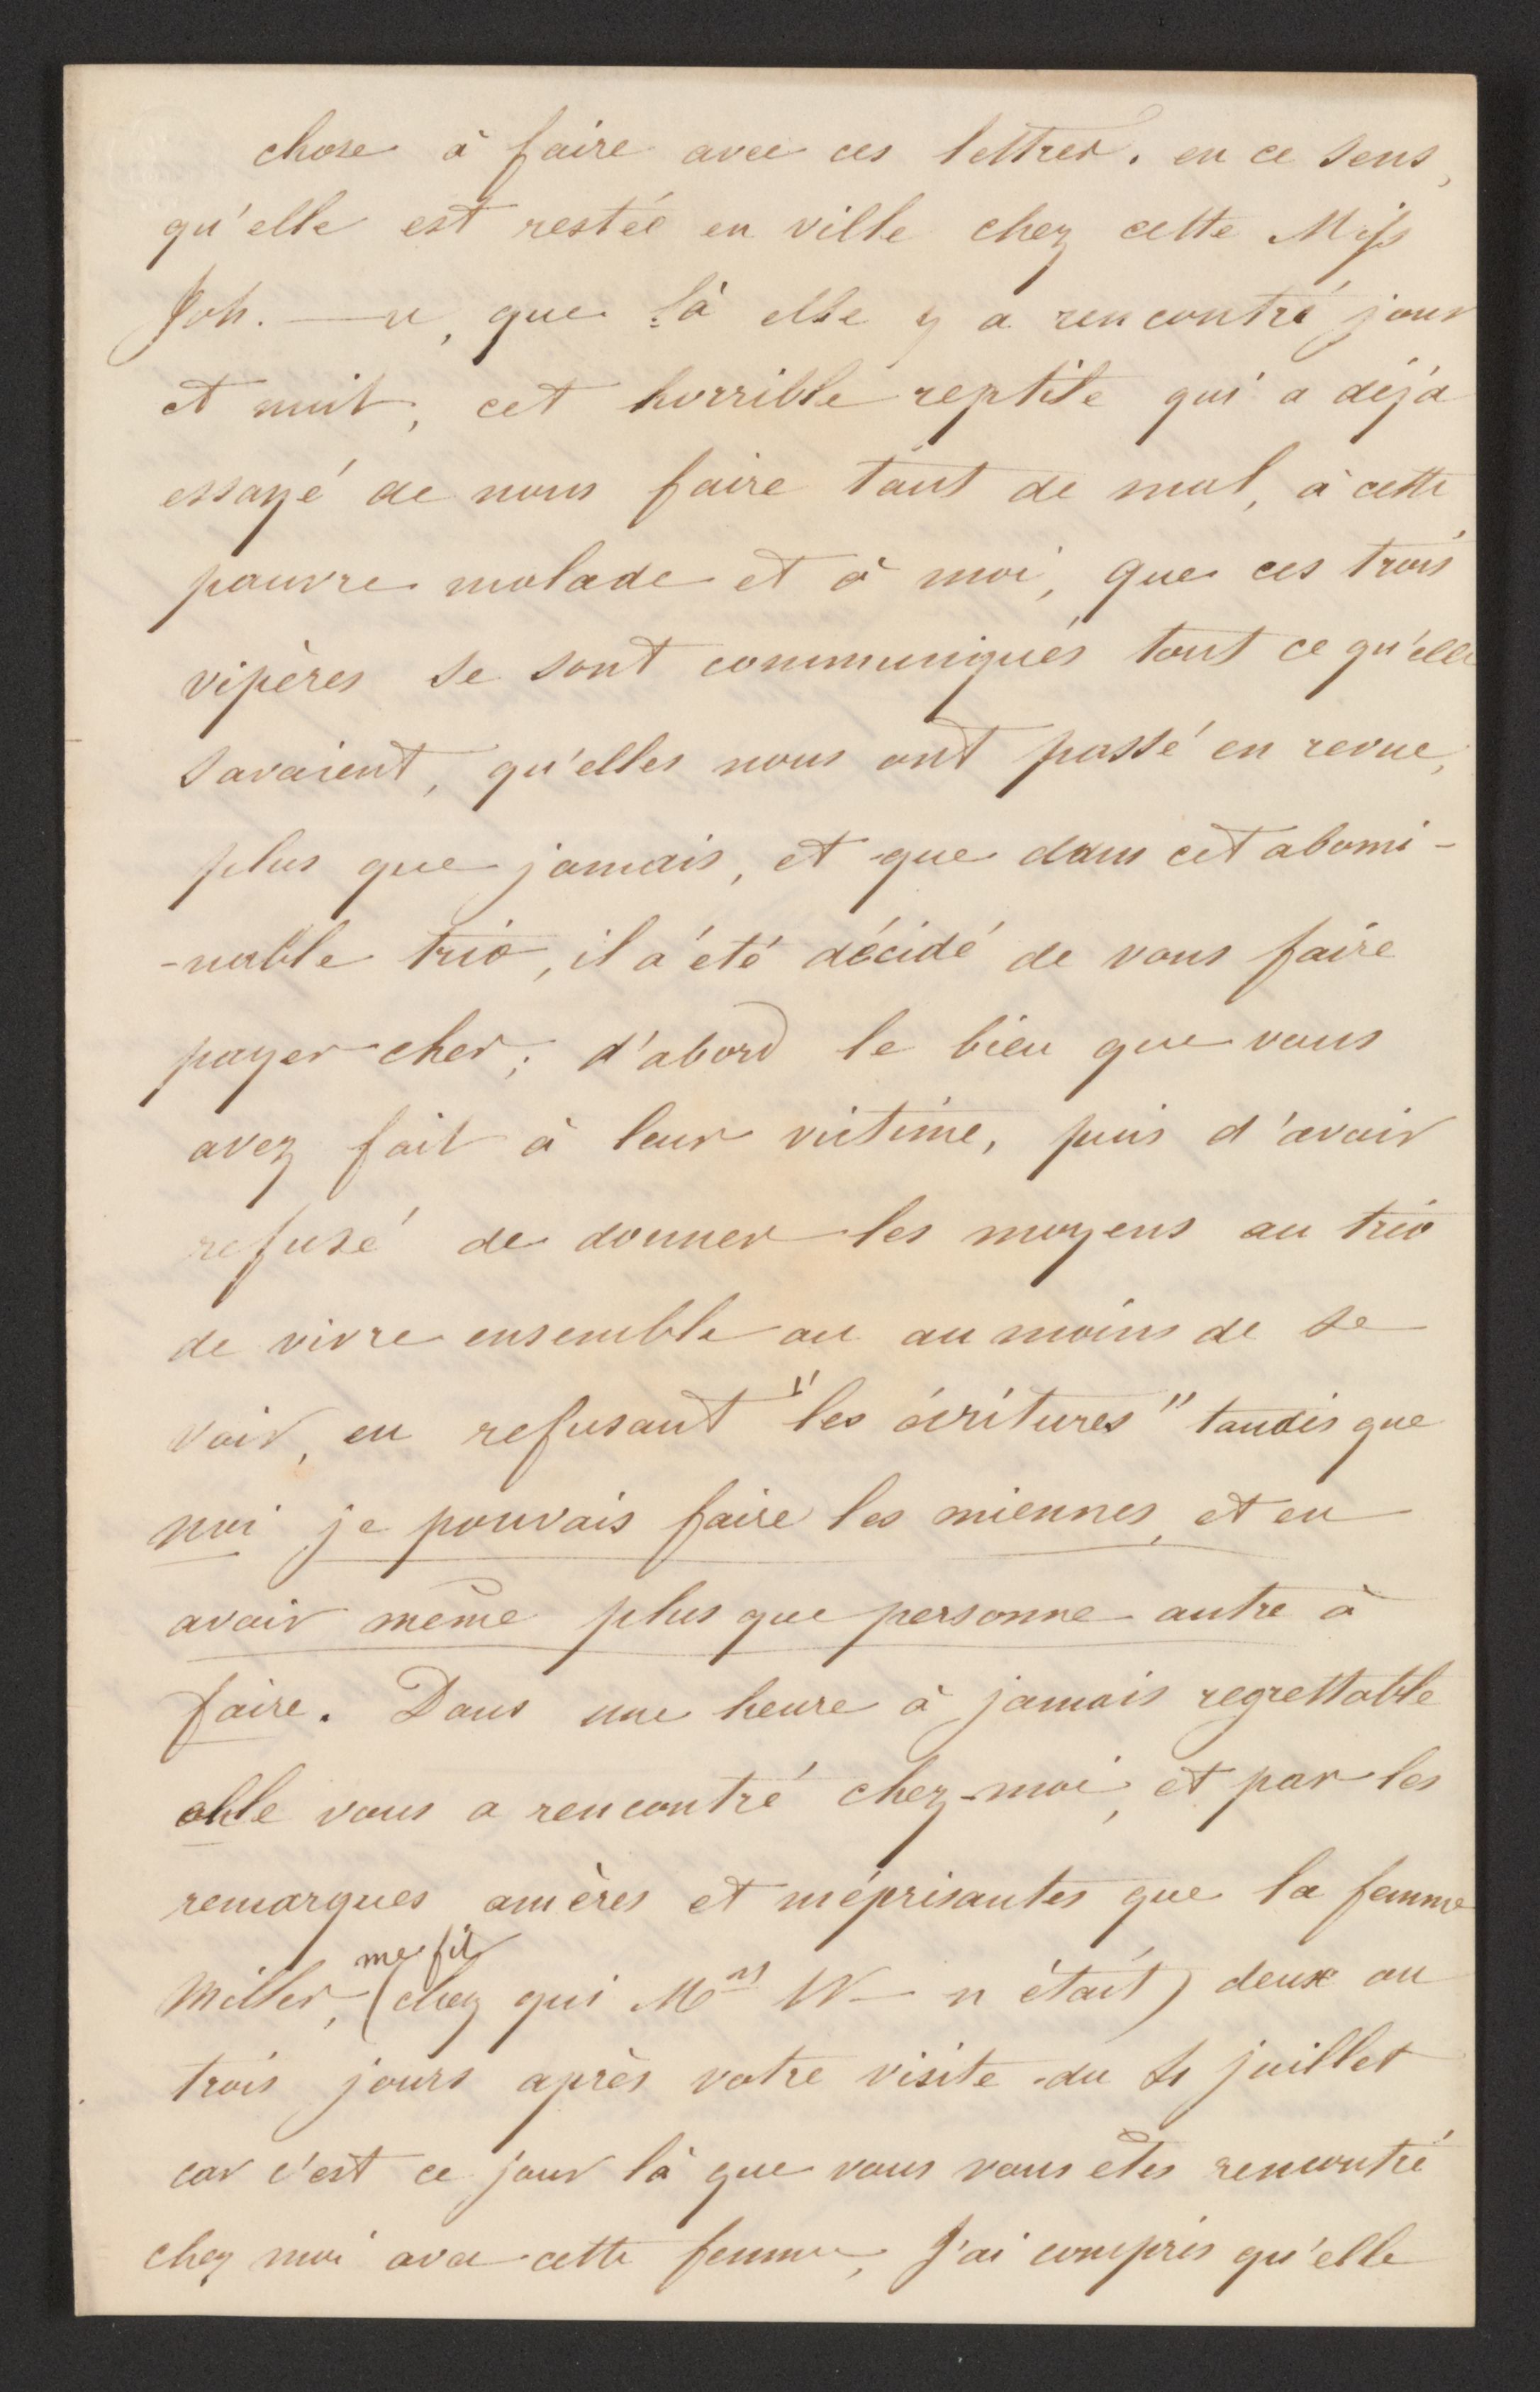 chose à faire avec ces lettres. en ce sens,
qu'elle est restée en ville chez cette Miss
Joh. — n, que là elle y a rencontré jour
et nuit, cet horrible reptile qui a déjà
essayé de nous faire tant de mal, à cette
pauvre malade et à moi, que ces trois
vipères se sont communiqués tout ce qu'elles
savaient, qu'elles nous ont passé en revue,
plus que jamais, et que dans cet abomi-
-nable trio, il a été décidé de vous faire
payer cher; d'abord le bien que vous
avez fait à leur victime, puis d'avoir
refusé de donner les moyens au trio
de vivre ensemble ou au moins de se
voir, en refusant "les écritures" tandis que
moi je pouvais faire les miennes, et en
avoir même plus que personne autre à
faire. Dans une heure à jamais regrettable
elle vous a rencontré chez-moi, et par les
remarques amères et méprisantes que la femme
me fit
Miller, (chez qui Mrs W— n était) deux ou
trois jours après votre visite du 4 juillet
car c'est ce jour là que vous vous êtes rencontré
chez moi avec cette femme, J'ai compris qu'elle